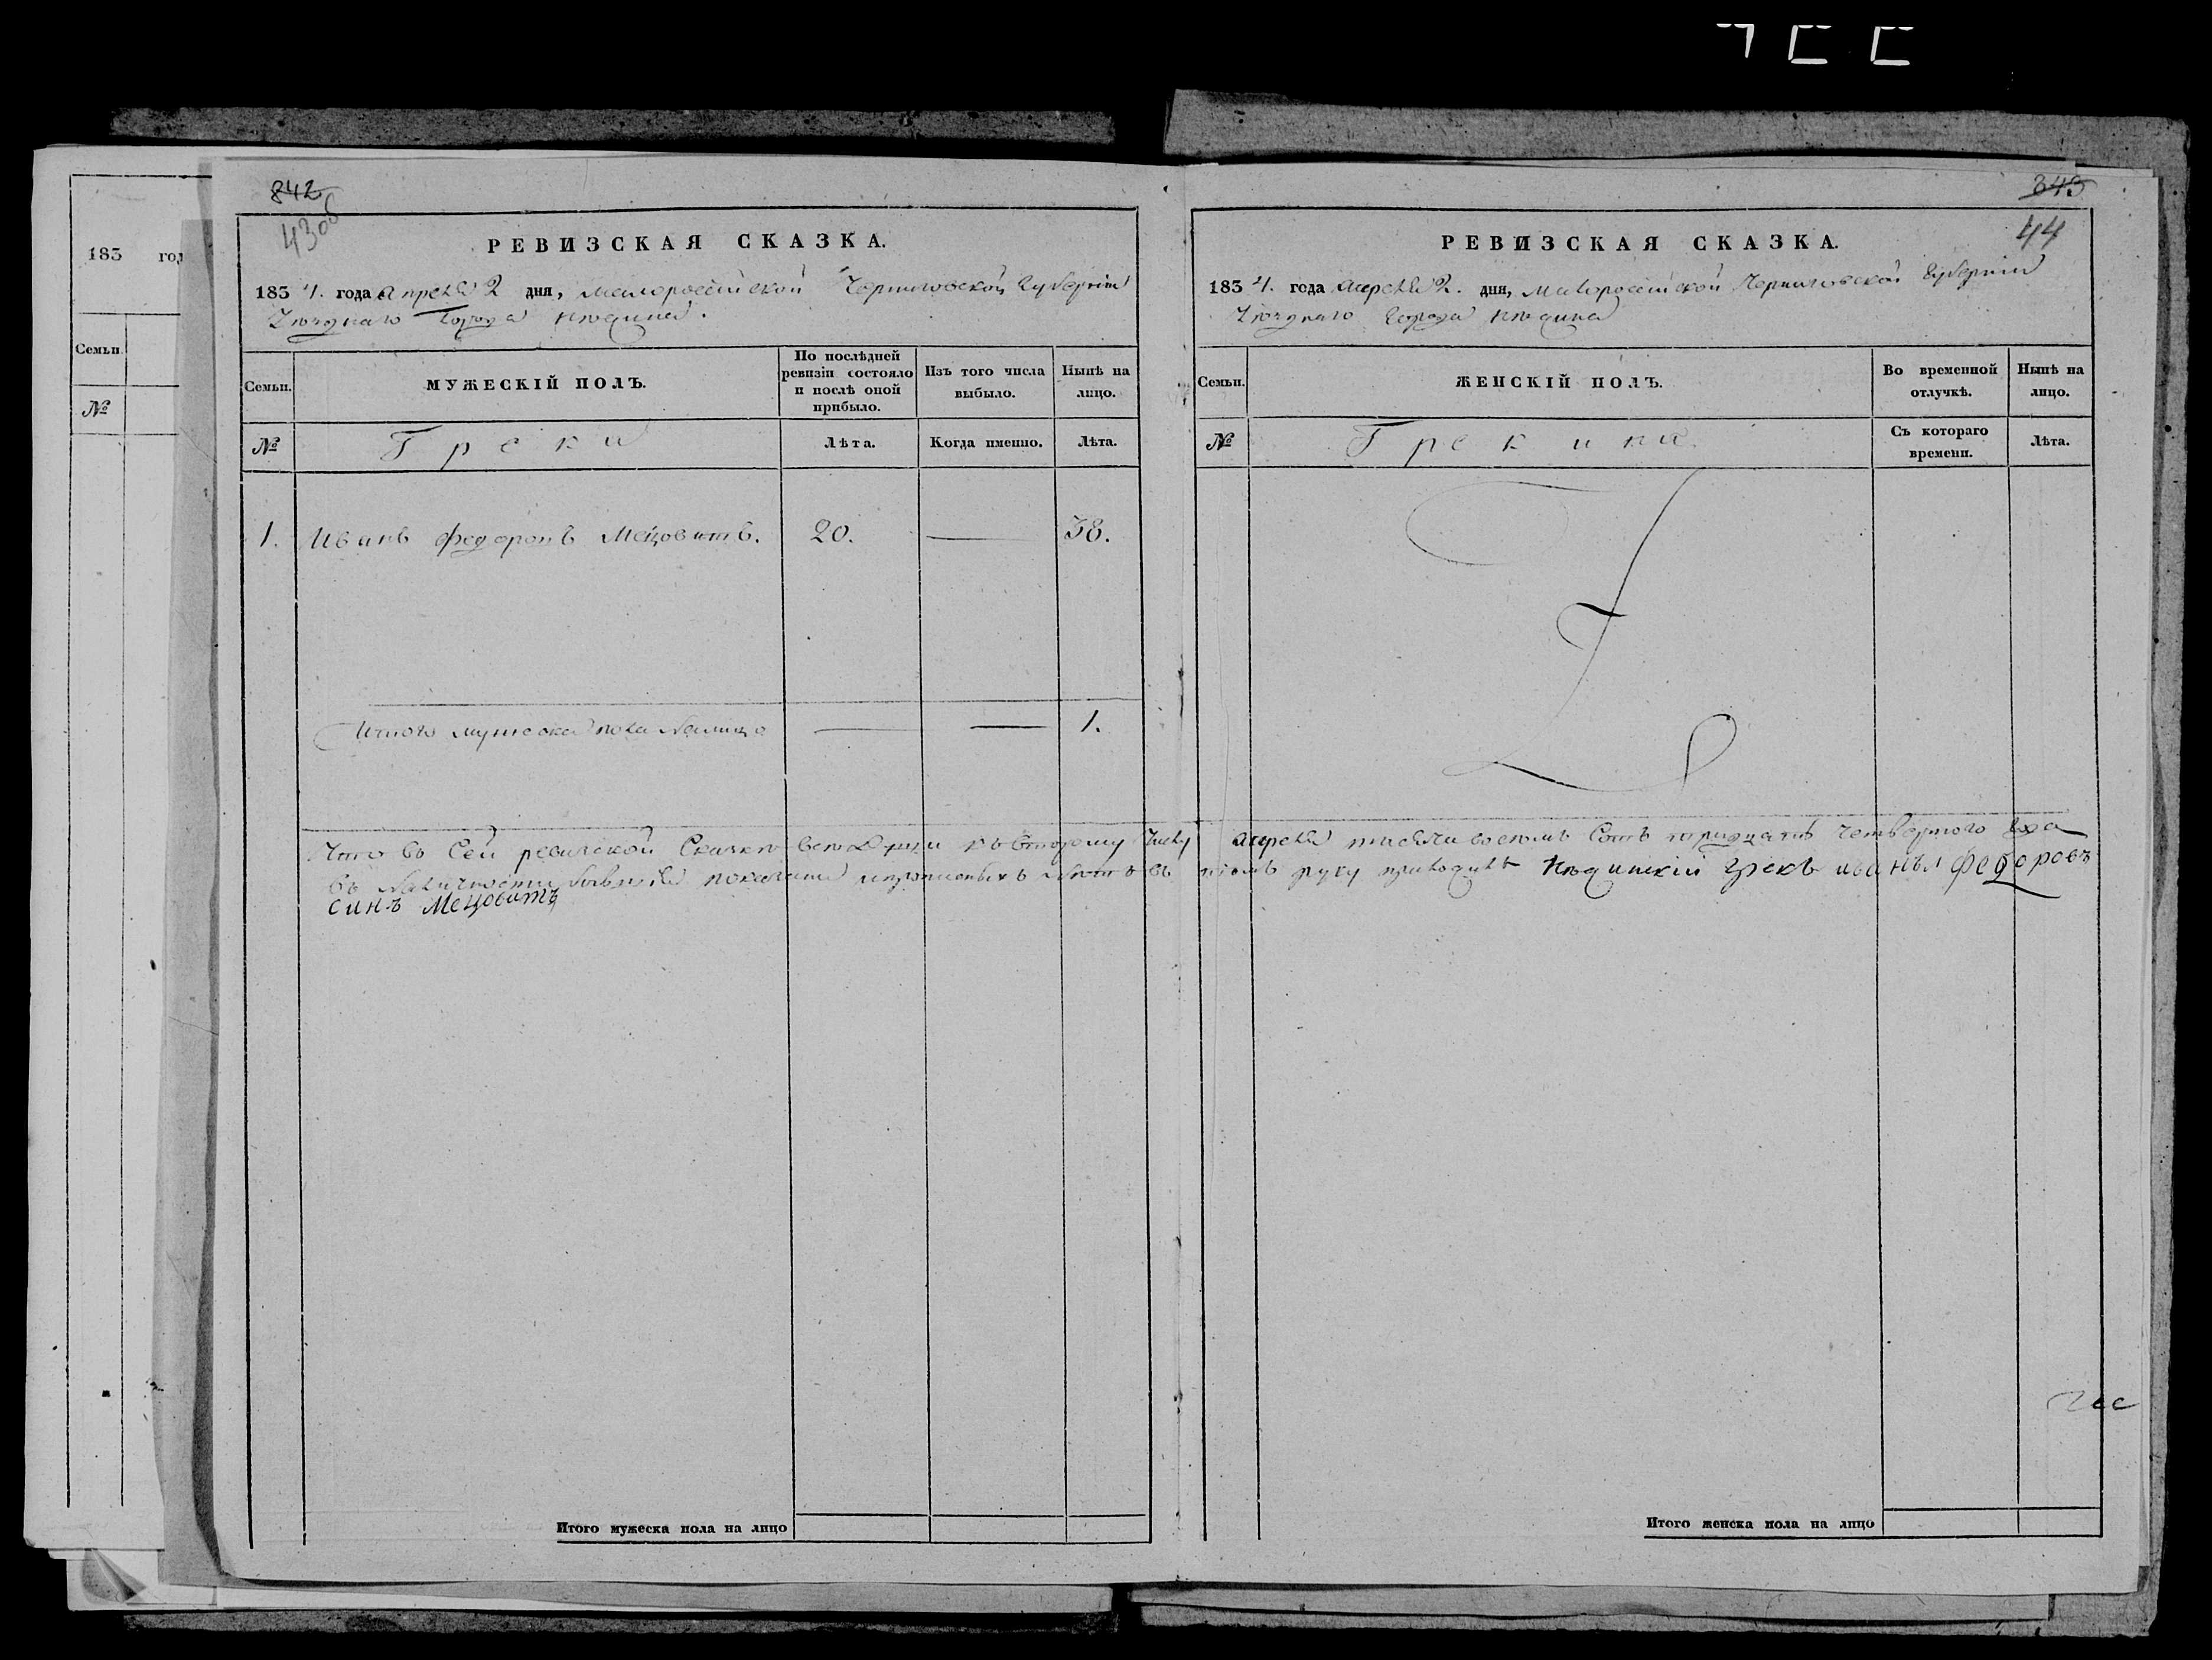 842
43об
183 год
Семьи.
№
РЕВИЗСКАЯ СКАЗКА.
1834. года апреля 2 дня, Малороссійской Черниговской Губерніи
Уезднаго Города Нѣжина.
Семьи.
МУЖЕСКІЙ ПОЛЪ.
По послѣдней ревизіи состояло и послѣ оной прибыло.
Изъ того числа выбыло.
Нынѣ на лицо.
№
Греки
Лѣта.
Когда именно.
Лѣта.
1. Иванъ Федоровъ Мецовитъ. 20. — 38.
Итого мужеска пола налицо — — 1.
Что въ сей ревизской Сказке все Души къ второму числу
въ Наличности
синъ Мецовитъ
Итого мужеска пола на лицо
843
44
РЕВИЗСКАЯ СКАЗКА.
1834. года апреля 2. дня, Малороссійской Черниговской Губерніи
Уезднаго Города Нѣжина
Семьи.
ЖЕНСКІЙ ПОЛЪ.
Во временной отлучкѣ.
Нынѣ на лицо.
№
Грекини
Съ котораго времени.
Лѣта.
апреля тысяча восемь Сотъ тридцать четвертого года
руку Нѣжинскій Грекъ иванъ Федоровъ
Итого женска пола на лицо